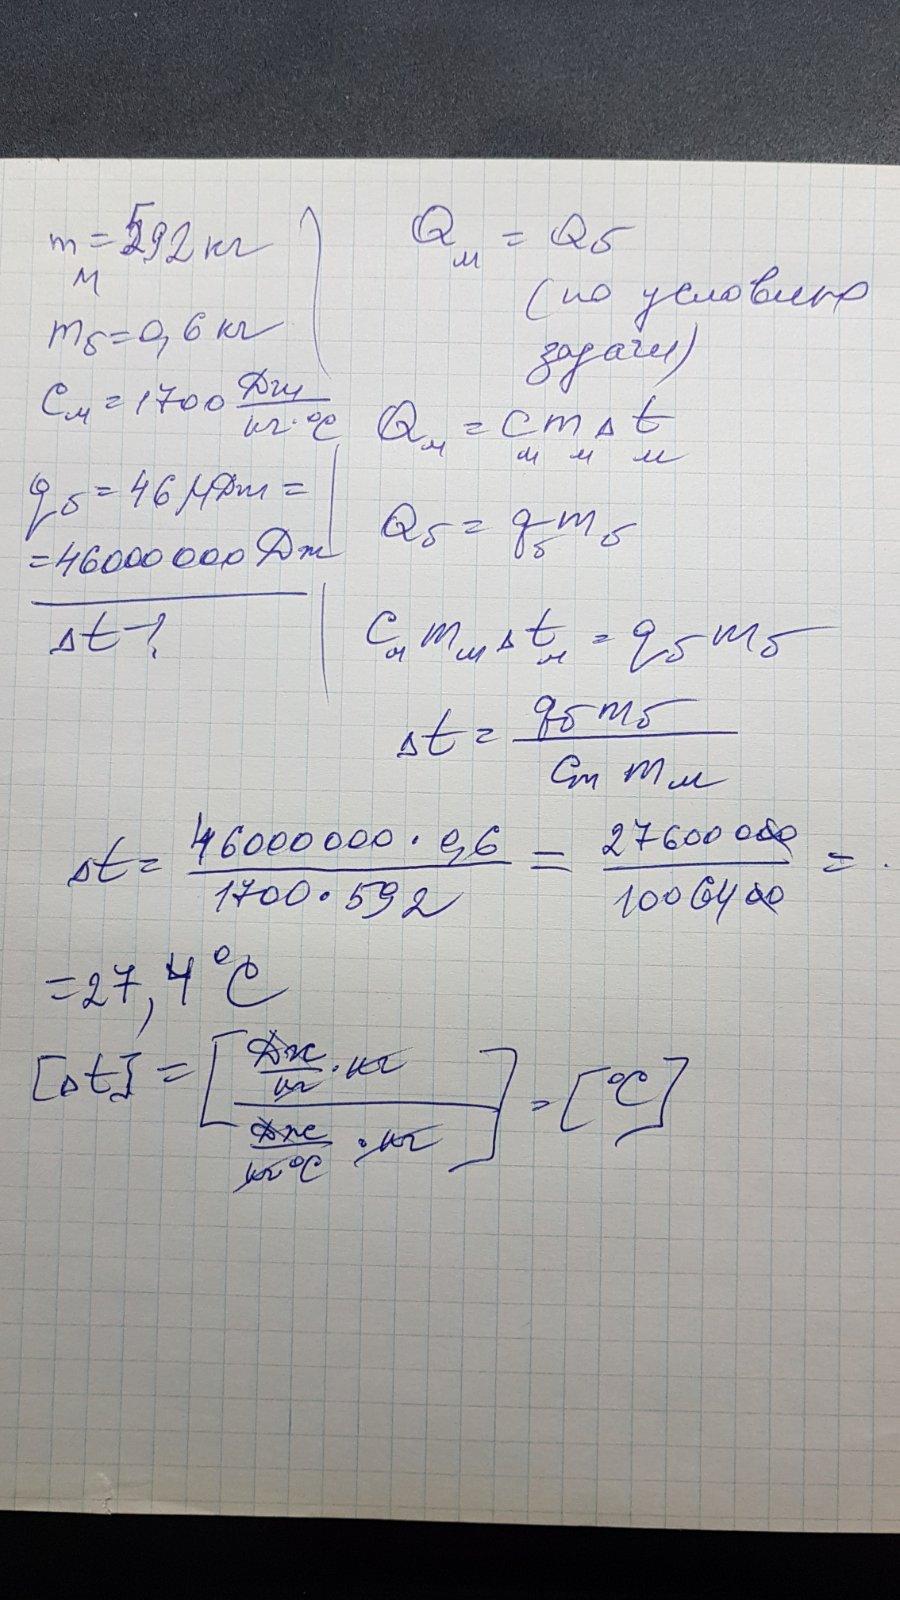 mм = 592 кг
mб = 0,6 кг
cм = 1700 Дж/кг·°C
qб = 46 МДж =
= 46000 000 Дж
Δt - ?
Qм = Qб
(по условию
задачи)
Qм = cм mм Δtм
Qб = qб mб
cм mм Δtм = qб mб
Δt = qб mб / cм mм
Δt = 46000 000 · 0,6 / 1700 · 592 = 27600 000 / 1006400 =
= 27,4 °C
[Δt] = [Дж/кг · кг / Дж/кг °C · кг] = [°C]